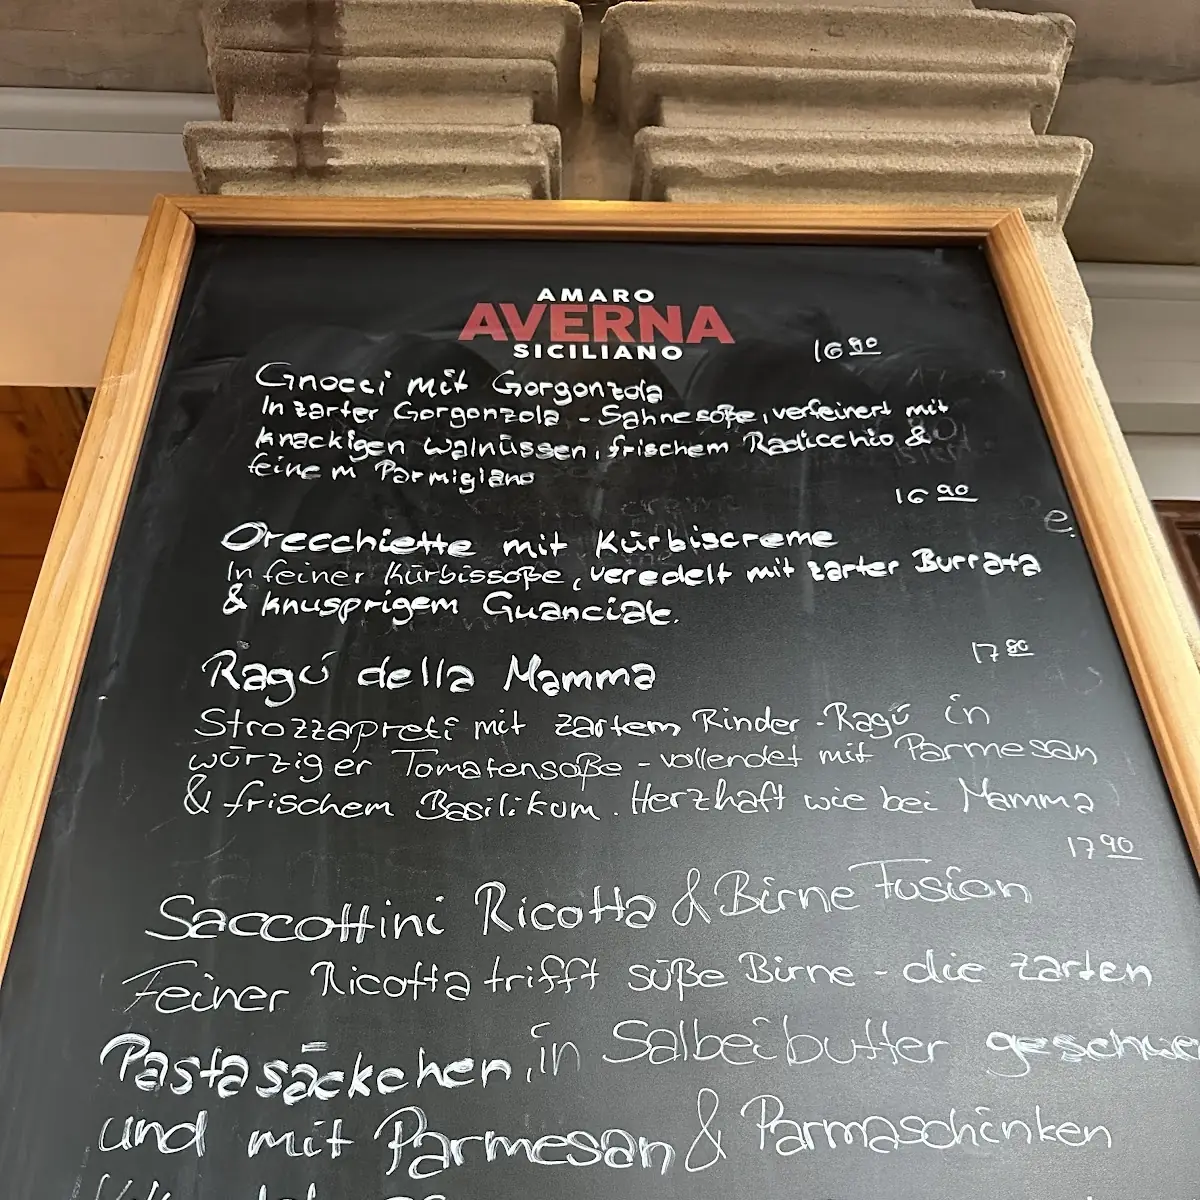 AMARO
AVERNA
SICILIANO
16 90
Gnocci mit Gorgonzola
In zarter Gorgonzola - Sahnesoße, verfeinert mit
knackigen Walnüssen, frischem Radicchio &
feinem Parmigiano
16 90
Orecchiette mit Kürbiscreme
In feiner Kürbissoße, veredelt mit zarter Burrata
& knusprigem Guanciale.
17 80
Ragú della Mamma
Strozzapreti mit zartem Rinder-Ragú in
würziger Tomatensoße - vollendet mit Parmesan
& frischem Basilikum. Herzhaft wie bei Mamma
17 90
Saccottini Ricotta & Birne Fusion
Feiner Ricotta trifft süße Birne - die zarten
Pastasäckchen, in Salbeibutter geschwe
und mit Parmesan & Parmaschinken